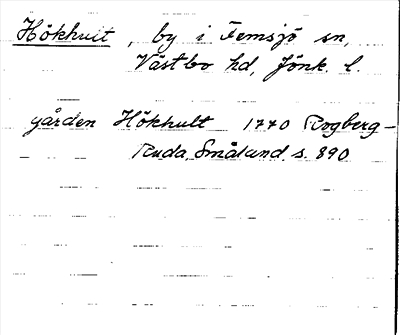 Hökhult, by i Femsjö sn,
Västbo hd, Jönk. l.
gården Hökhult 1770 Rogberg-
Ruda, Småland s. 890